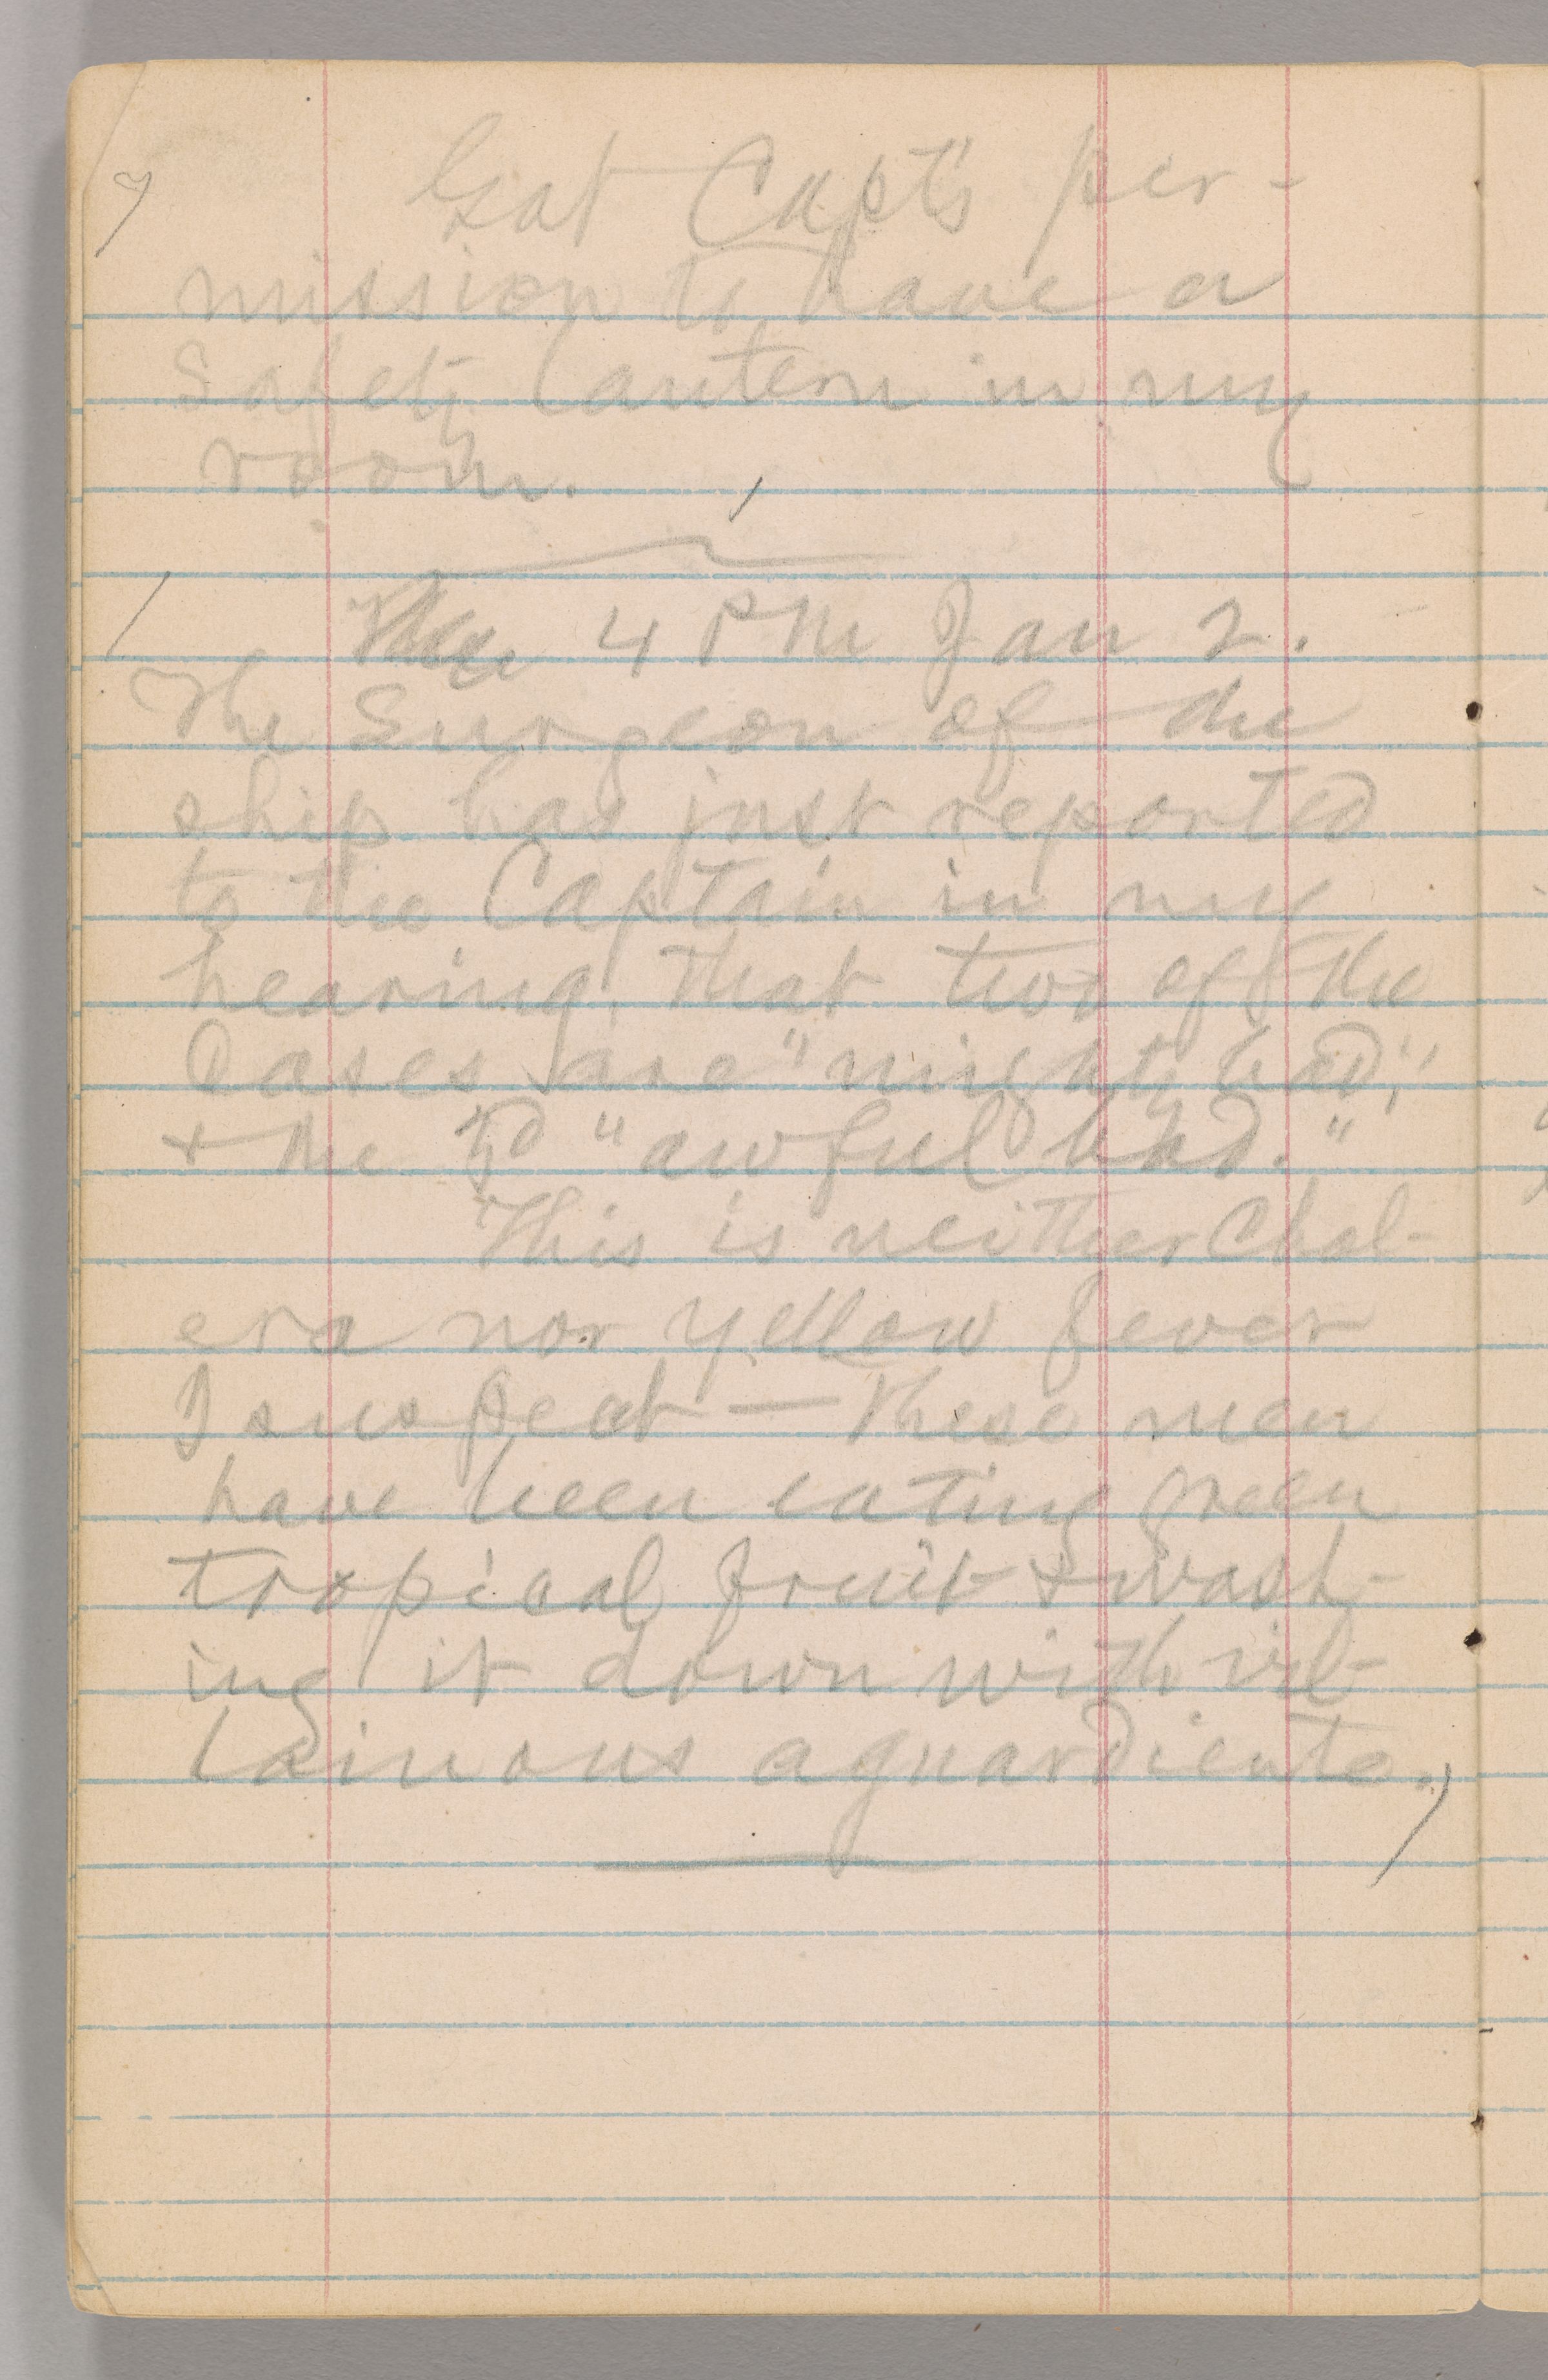 Got Capt's per-
mission to have a
safety lantern in my
room.
4 PM Jan 2.
The Surgeon of the
ship has just reported
to the Captain in my
hearing, that two of the
Cases are "mighty bad,"
& the 3d "awful bad."
This is neither Chol-
era nor yellow fever
I suspect — these men
have been eating green
tropical fruit & wash-
ing it down with vil-
lainous aguardiente.